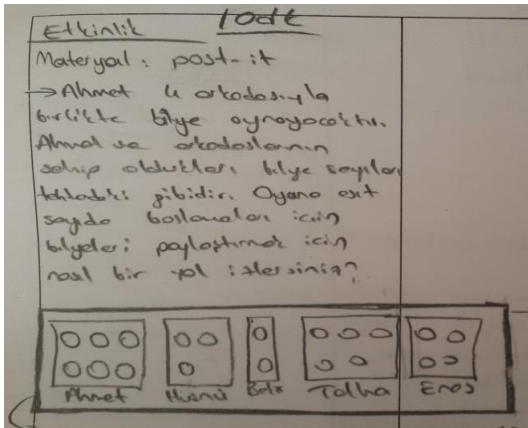 10dk
Etkinlik
Materyal: post-it
→ Ahmet 4 arkadaşıyla
birlikte bilye oynayacaktır.
Ahmet ve arkadaşlarının
sahip oldukları bilye sayıları
tahtadaki gibidir. Oyuna eşit
sayıda başlamaları için
bilyeleri paylaştırmak için
nasıl bir yol izlersiniz?
Ahmet Hüsnü Talha Enes